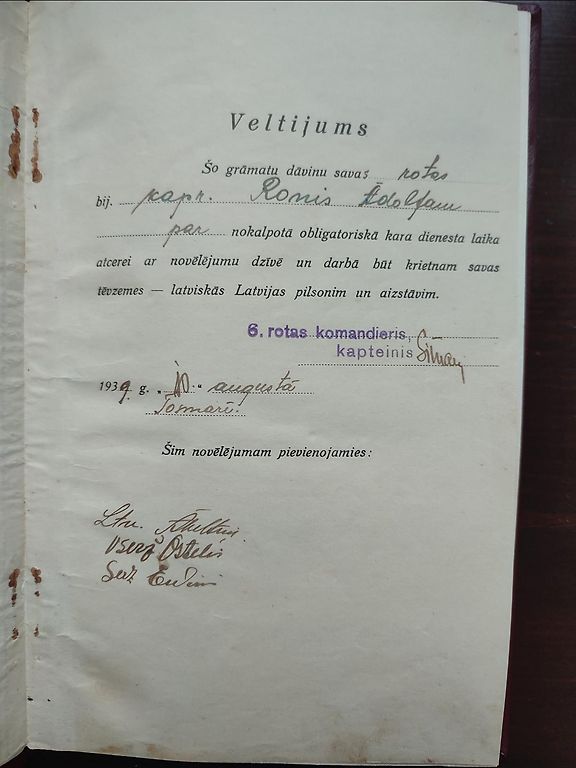 Veltijums
Šo grāmatu dāvinu savas rotas
bij. kapr. Ronis Ādolfam
par nokalpotā obligatoriskā kara dienesta laika
atcerei ar novēlējumu dzīvē un darbā būt krietnam savas
tēvzemes — latviskās Latvijas pilsonim un aizstāvim.
6. rotas komandieris,
kapteinis
1939 g. „10." augustā
Tosmarē.
Šim novēlējumam pievienojamies:
Ltn.
Vserž Ostelis
Serž